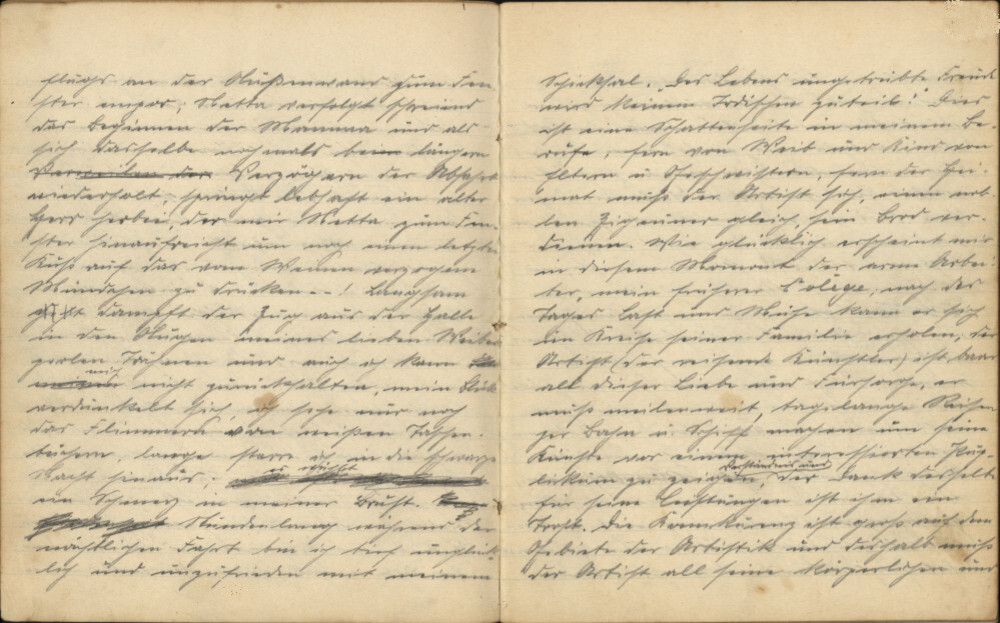 flugs an der Außenwand zum Fen-
ster empor; Netta verfolgt schreiend
das Beginnen der Mamma und als
sich dasselbe nochmals beim längern
Verweilen der Verzögern der Abfahrt
wiederholt, springt lebhaft ein alter
Herr herbei, der mir Netta zum Fen-
ster hinaufreicht um noch einen letzten
Kuß auf das vom Weinen verzogene
Mündchen zu drücken - - ! Langsam
dampft der Zug aus der Halle
in den Augen meines lieben Weibes
perlen Tränen und auch ich kann
mich nicht zurückhalten, mein Blick
verdunkelt sich, ich sehe nur noch
das Flimmern von weißen Taschen-
tüchern, lange starre ich in die schwarze
Nacht hinaus; es wühlt
ein Schmerz in meiner Brust.
Stundenlang während der
nächtlichen Fahrt bin ich tief unglück-
lich und unzufrieden mit meinem
Schicksal. Des Lebens ungetrübte Freude
wird keinem Irdischen zuteil!" Dies
ist eine Schattenseite in meinem Be-
rufe, fern von Weib und Kind von
Eltern u Geschwistern, fern der Hei-
mat muß der Artist sich, einem
Zigeuner gleich, sein Brod ver-
dienen. Wie glücklich erscheint mir
in diesem Moment der arme Arbei-
ter, mein früherer Colege; nach des
Tages Last und Mühe kann er sich
im Kreise seiner Familie erholen, der
Artist (der reisende Künstler) ist baar
all dieser Liebe und Fürsorge, er
muß meilenweit, tagelange Reisen
per Bahn u. Schiff machen um seine
Künste vor einem interessierten Pub-
likum zu zeigen, Verständnis und der Dank desselben
für seine Leistungen ist ihm ein
Trost. Die Konkurenz ist groß auf dem
Gebiete der Artistik und deshalb muß
der Artist all seine körperlichen und